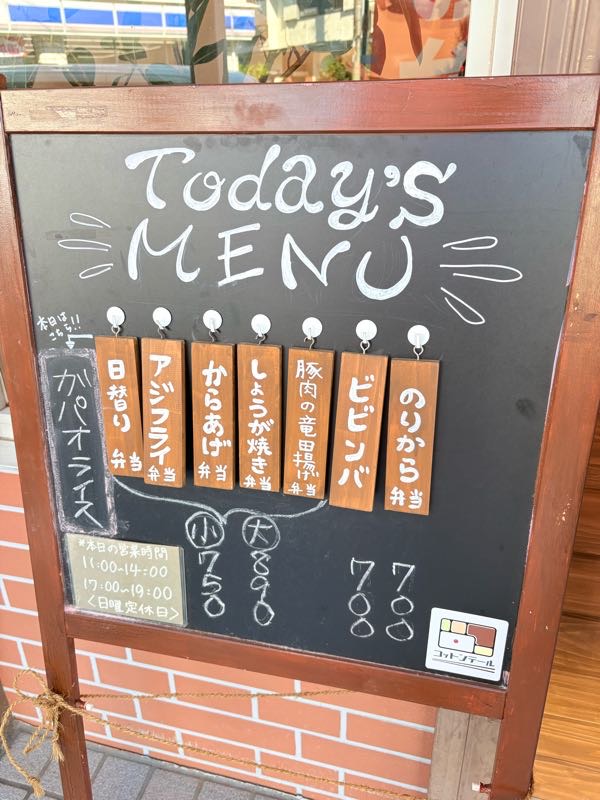 Today's
MENU
本日は
こちら!!
ガパオライス
日替り弁当
アジフライ弁当
からあげ弁当
しょうが焼き弁当
豚肉の竜田揚げ弁当
ビビンバ
のりから弁当
小 750
大 890
700
700
*本日の営業時間
11:00~14:00
17:00~19:00
<日曜定休日>
コットンテール